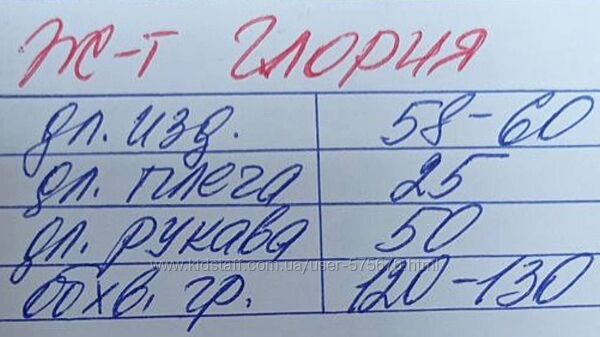 Ж-Т ГЛОРИЯ
дл. изд. 58-60
дл. плега 25
дл. рукава 50
обхв. гр. 120-130
www.kidstaff.com.ua/user-575676.html